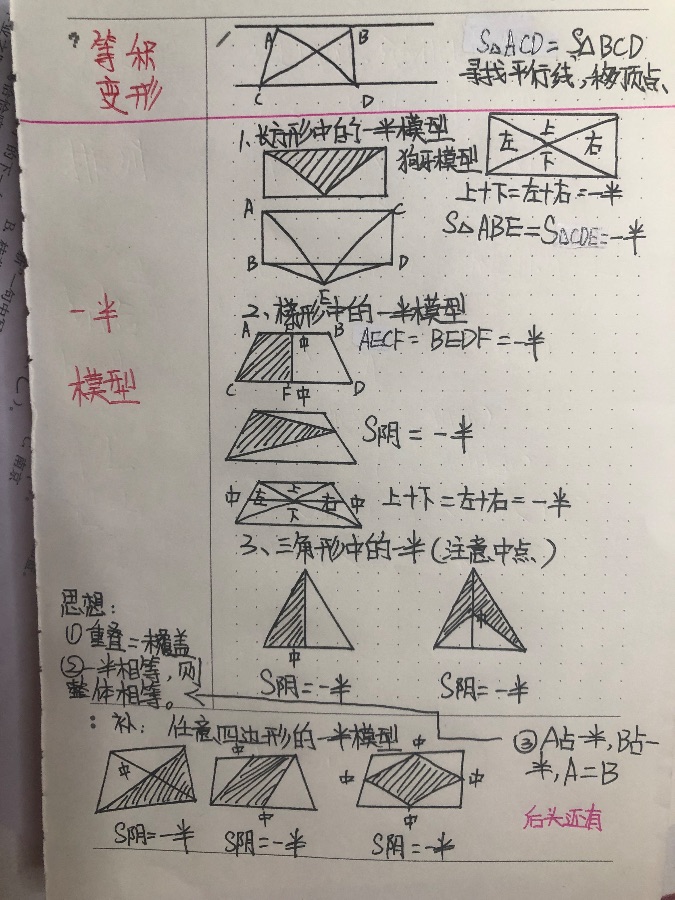 等积
变形
A B
C D
S△ACD=S△BCD
寻找平行线,移顶点、
1、长方形中的一半模型
狗牙模型
上
左 右
下
上+下=左+右=一半
A C
B D
E
S△ABE=S△CDE=一半
一半
模型
2、梯形中的一半模型
A E B
中
C F中 D
AECF=BEDF=一半
S阴=一半
上
中 左 右 中
下
上+下=左+右=一半
3、三角形中的一半(注意中点)
中
中
S阴=一半
S阴=一半
思想:
①重叠=未覆盖
②一半相等,则
整体相等。
补:任意四边形的一半模型
③A占一半,B占一
半,A=B
中
中
中
中
中 中
中
S阴=一半
S阴=一半
S阴=一半
后头还有